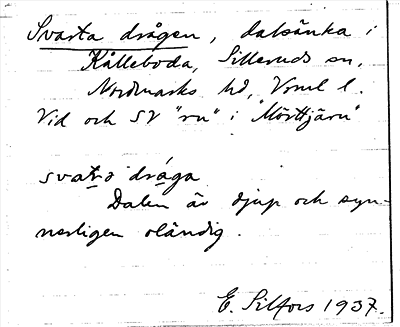 Svarta drågen, dalsänka i
Kålleboda, Silleruds sn,
Nordmarks hd, Vrml l.
Vid och SV "rn" i "Mörttjärn"
svaṭa dråga
Dalen är djup och syn-
nerligen oländig.
E. Silfors 1937.